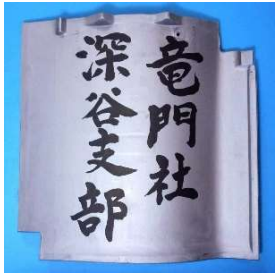 竜門社
深谷支部